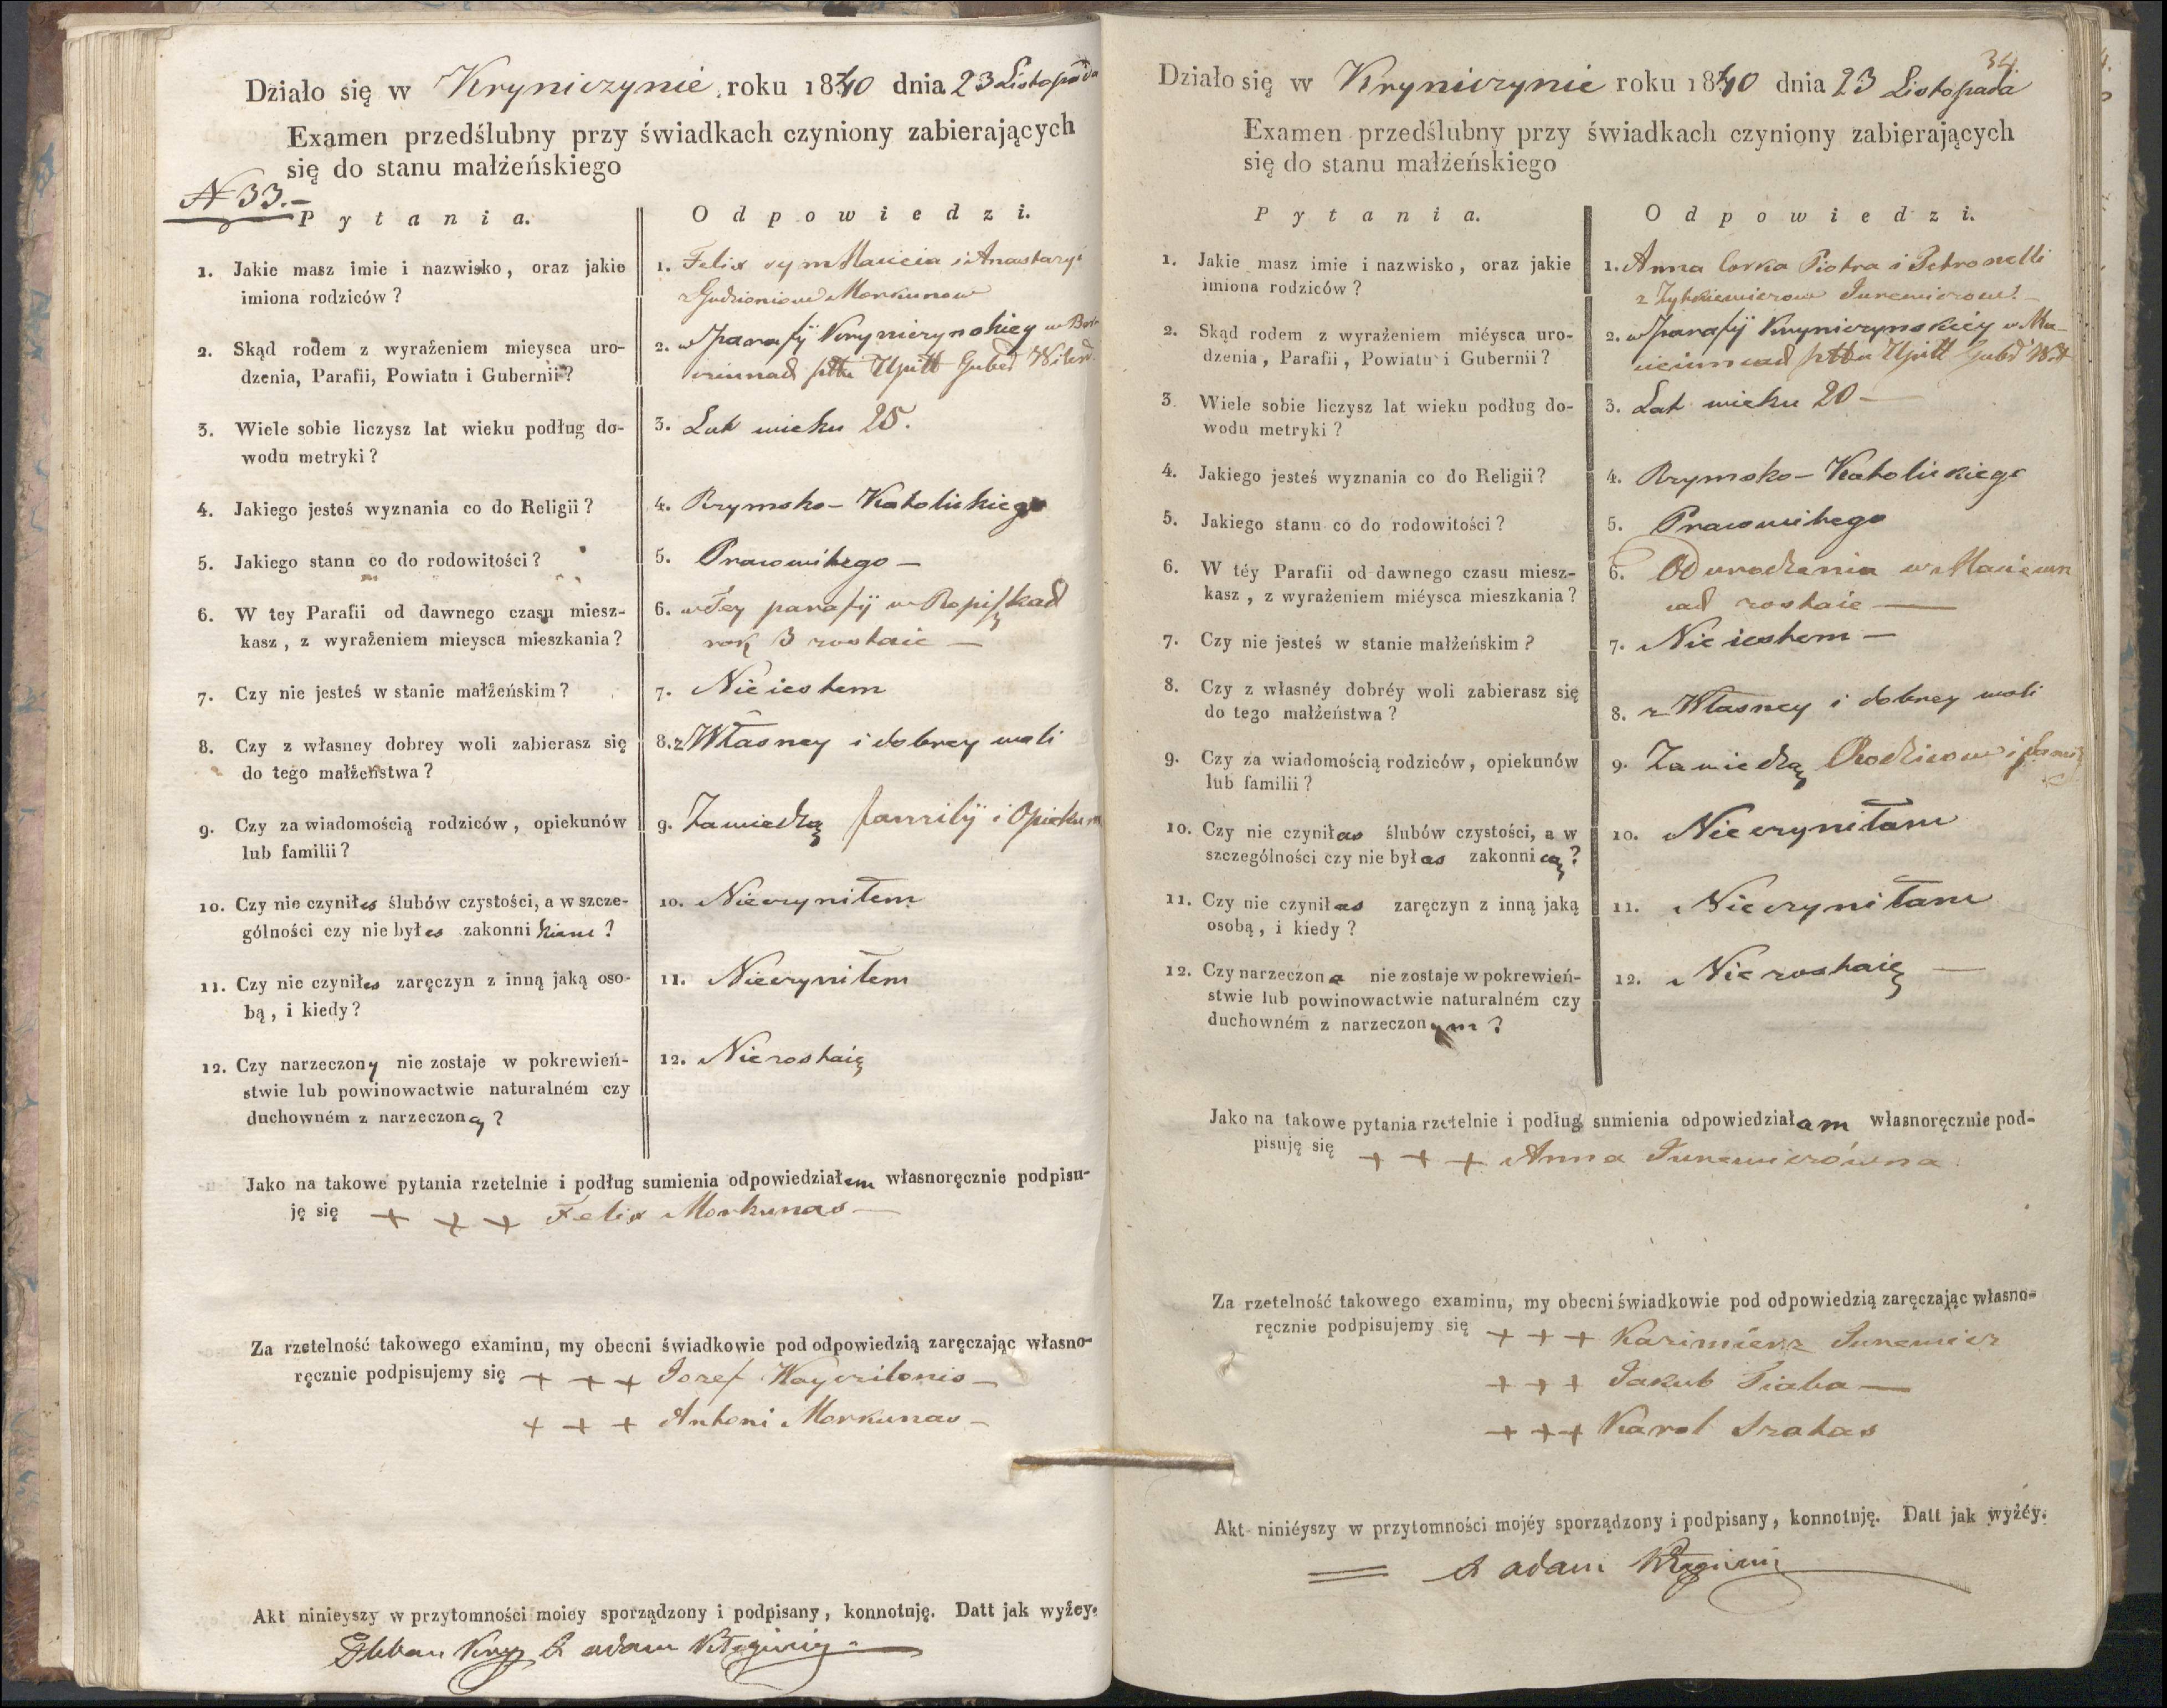 Działo się w Kryniczynie roku 1840 dnia 23 Listopada
Examen przedślubny przy świadkach czyniony zabierających
się do stanu małżeńskiego
N 33.
Pytania.
Odpowiedzi.
1. Jakie masz imie i nazwisko, oraz jakie
imiona rodziców?
1. Felix syn Macieia i Anastazyi
Morkunow
2. Skąd rodem z wyrażeniem mieysca uro-
dzenia, Parafii, Powiatu i Gubernii?
2. w parafij Kryniczynskiey w
pttu Upitt Guber
3. Wiele sobie liczysz lat wieku podług do-
wodu metryki?
3. Lat wieku 25.
4. Jakiego jesteś wyznania co do Religii?
4. Rzymsko-Katolickiego
5. Jakiego stanu co do rodowitości?
5. Prawowitego –
6. W tey Parafii od dawnego czasu miesz-
kasz, z wyrażeniem mieysca mieszkania?
6. w Tey parafij w
rok 3 zostaie –
7. Czy nie jesteś w stanie małżeńskim?
7. Nie iestem
8. Czy z własney dobrey woli zabierasz się
do tego małżeństwa?
8. z Własney i dobrey woli
9. Czy za wiadomością rodziców, opiekunów
lub familii?
9. Zawiedzą familij i Opiekun
10. Czy nie czyniłes ślubów czystości, a w szcze-
gólności czy nie byłes zakonnikiem?
10. Nieczyniłem
11. Czy nie czyniłes zaręczyn z inną jaką oso-
bą, i kiedy?
11. Nieczyniłem
12. Czy narzeczony nie zostaje w pokrewień-
stwie lub powinowactwie naturalném czy
duchowném z narzeczoną?
12. Niezostaię
Jako na takowe pytania rzetelnie i podług sumienia odpowiedziałem własnoręcznie podpisu-
ję się + + + Felix Morkunas –
Za rzetelność takowego examinu, my obecni świadkowie pod odpowiedzią zaręczając własno-
ręcznie podpisujemy się + + + Jozef –
+ + + Antoni Morkunas –
Akt ninieyszy w przytomności moiey sporządzony i podpisany, konnotuję. Datt jak wyżey.
X adam
34.
Działo się w Kryniczynie roku 1840 dnia 23 Listopada
Examen przedślubny przy świadkach czyniony zabierających
się do stanu małżeńskiego
Pytania.
Odpowiedzi.
1. Jakie masz imie i nazwisko, oraz jakie
imiona rodziców?
1. Anna Corka Piotra i Petronelli
z
2. Skąd rodem z wyrażeniem miéysca uro-
dzenia, Parafii, Powiatu i Gubernii?
2. w parafij Kryniczynskiéy w
pttu Upitt
3. Wiele sobie liczysz lat wieku podług do-
wodu metryki?
3. Lat wieku 20 –
4. Jakiego jesteś wyznania co do Religii?
4. Rzymsko-Katolickiego
5. Jakiego stanu co do rodowitości?
5. Prawowitego
6. W téy Parafii od dawnego czasu miesz-
kasz, z wyrażeniem miéysca mieszkania?
6. Od urodzenia w
zostaie –
7. Czy nie jesteś w stanie małżeńskim?
7. Nie iestem –
8. Czy z własnéy dobréy woli zabierasz się
do tego małżeństwa?
8. z Własney i dobrey woli
9. Czy za wiadomością rodziców, opiekunów
lub familii?
9. Zawiedzą Rodzicow i
10. Czy nie czyniłas ślubów czystości, a w
szczególności czy nie byłas zakonnicą?
10. Nieczyniłam
11. Czy nie czyniłas zaręczyn z inną jaką
osobą, i kiedy?
11. Nieczyniłam
12. Czy narzeczona nie zostaje w pokrewień-
stwie lub powinowactwie naturalném czy
duchowném z narzeczonym?
12. Niezostaię –
Jako na takowe pytania rzetelnie i podług sumienia odpowiedziałam własnoręcznie pod-
pisuję się + + + Anna
Za rzetelność takowego examinu, my obecni świadkowie pod odpowiedzią zaręczając własno-
ręcznie podpisujemy się + + + Kazimierz
+ + + Jakub –
+ + + Karol
Akt niniéyszy w przytomności mojéy sporządzony i podpisany, konnotuję. Datt jak wyżéy.
X adam